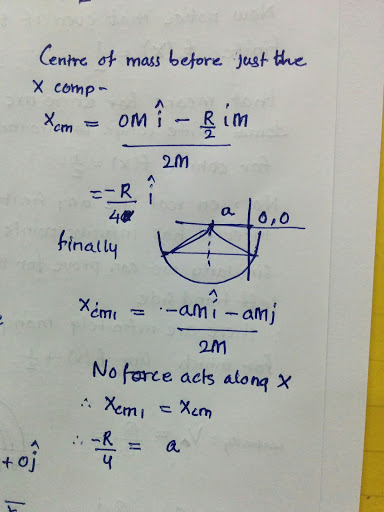 Centre of mass before just the
X comp-
Xcm = 0M î - R/2 iM
2M
= -R/4 î
a 0,0
finally
Xcm1 = -aMî - aMj
2M
No force acts along X
∴ Xcm1 = Xcm
∴ -R/4 = a
+0ĵ